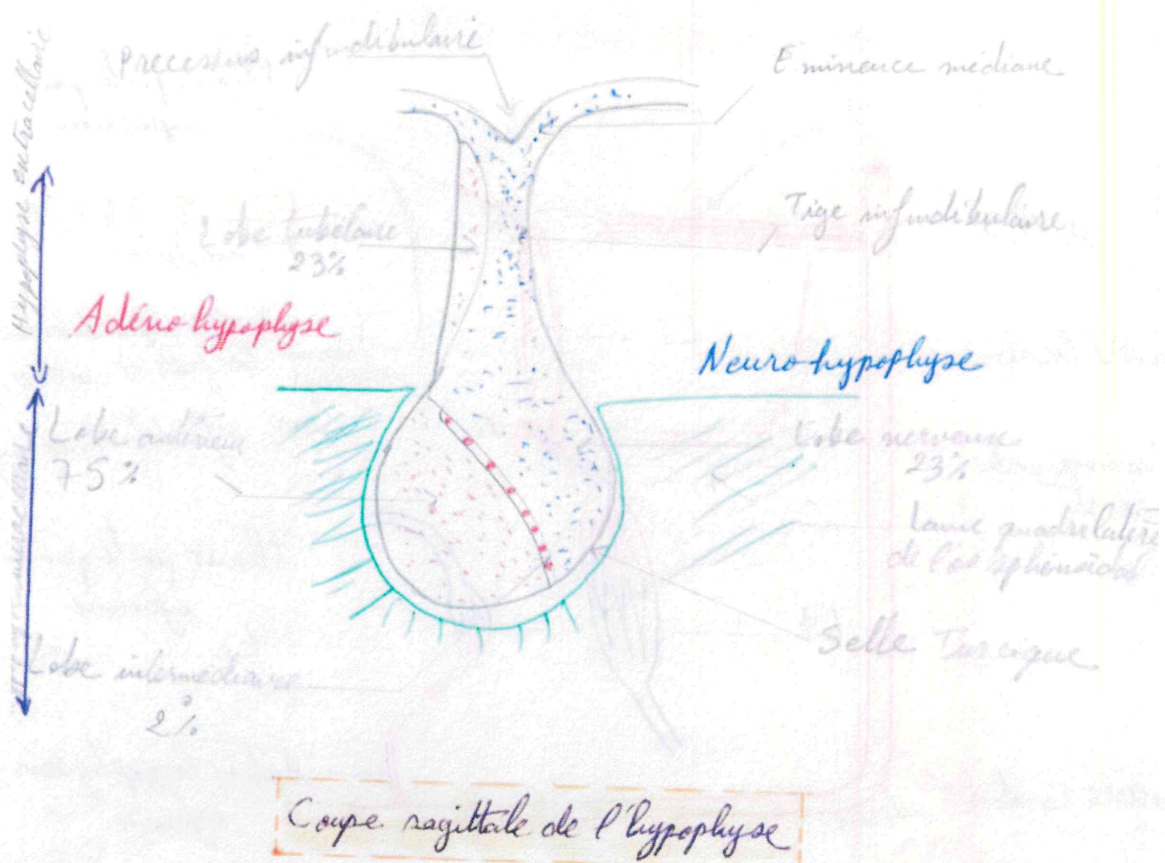 Processus infundibulaire
Eminence médiane
Hypophyse extracellaire
Lobe tubélaire
23%
Tige infundibulaire
Adéno hypophyse
Neuro hypophyse
Lobe antérieur
75%
Lobe nerveux
23%
Lame quadrilatère
de l'os sphénoïdal
Selle Turcique
Lobe intermédiaire
2%
Coupe sagittale de l'hypophyse